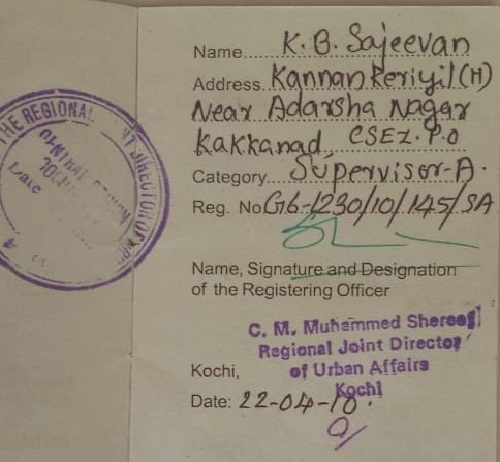 THE REGIONAL JOINT DIRECTOR OF
Date
Name K. B. Sajeevan
Address Kannankeriyil (H)
Near Adarsha Nagar
Kakkanad, CSEZ. P.O
Category Supervisor-A.
Reg. No. G6-1230/10/145/SA
Name, Signature and Designation
of the Registering Officer
C. M. Muhammed Shereef
Regional Joint Director
of Urban Affairs
Kochi
Kochi,
Date: 22-04-10.